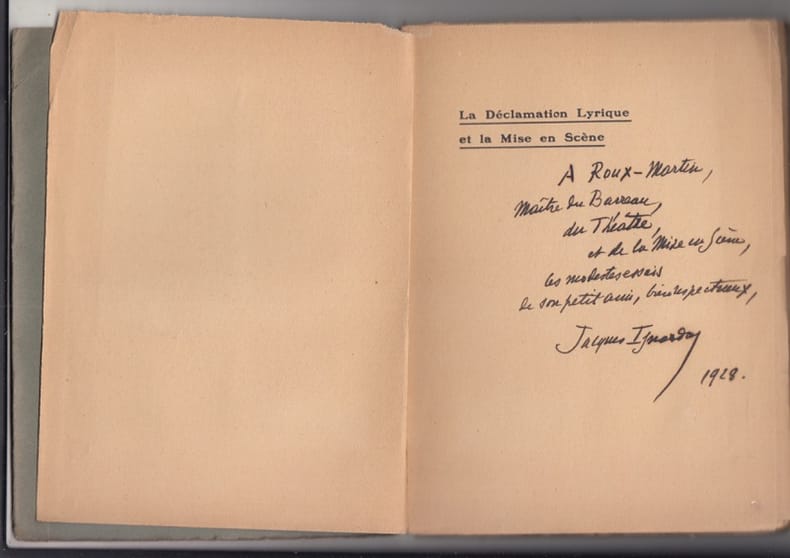 La Déclamation Lyrique
et la Mise en Scène
A Roux-Martin,
Maître du Barreau,
du Théâtre,
et de la Mise en Scène,
les modestes essais
de son petit ami, bien respectueux,
Jacques
1928.